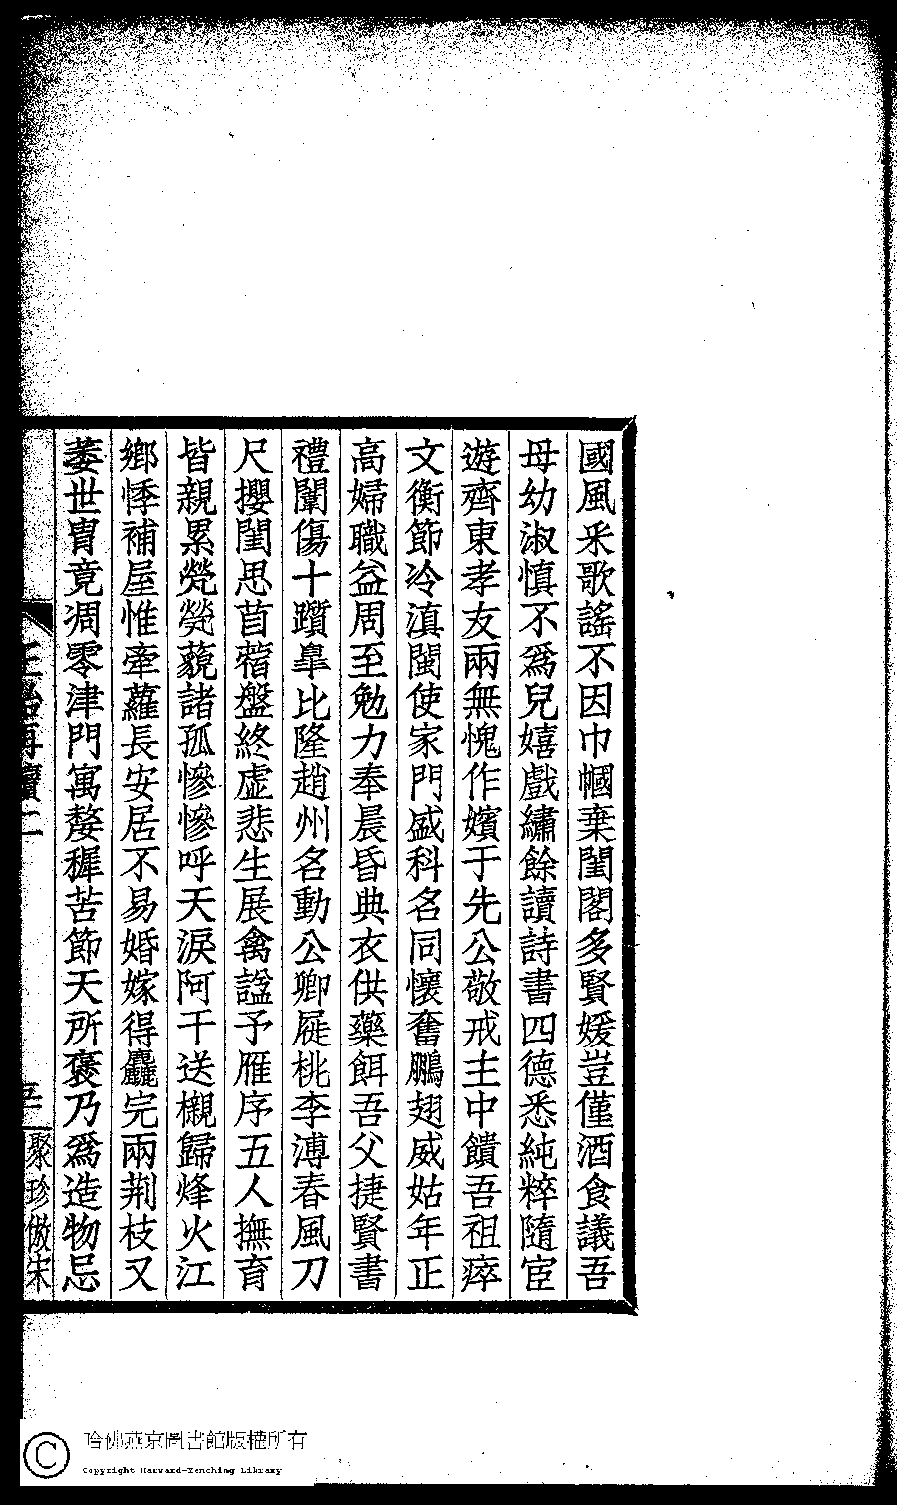 國風釆歌謠不因巾幗棄閨閣多賢媛豈僅酒食議吾
母幼淑慎不爲兒嬉戲繡餘讀詩書四德悉純粹隨宦
遊齊東孝友兩無愧作嬪于先公敬戒主中饋吾祖瘁
文衡節冷滇閩使家門盛科名同懷奮鵬翅威姑年正
高婦職益周至勉力奉晨昏典衣供藥餌吾父捷賢書
禮闈傷十躓臯比隆趙州名動公卿屣桃李溥春風刀
尺攖閨思苜蓿盤終虛悲生展禽謚予雁序五人撫育
皆親累煢煢藐諸孤慘慘呼天淚阿干送櫬歸烽火江
鄉悸補屋惟牽蘿長安居不易婚嫁得麤完兩荆枝又
萎世胄竟凋零津門寓嫠穉苦節天所褒乃爲造物忌
二
聚珍倣宋
哈佛燕京圖書館版權所有
Copyright Harvard-Yenching Library